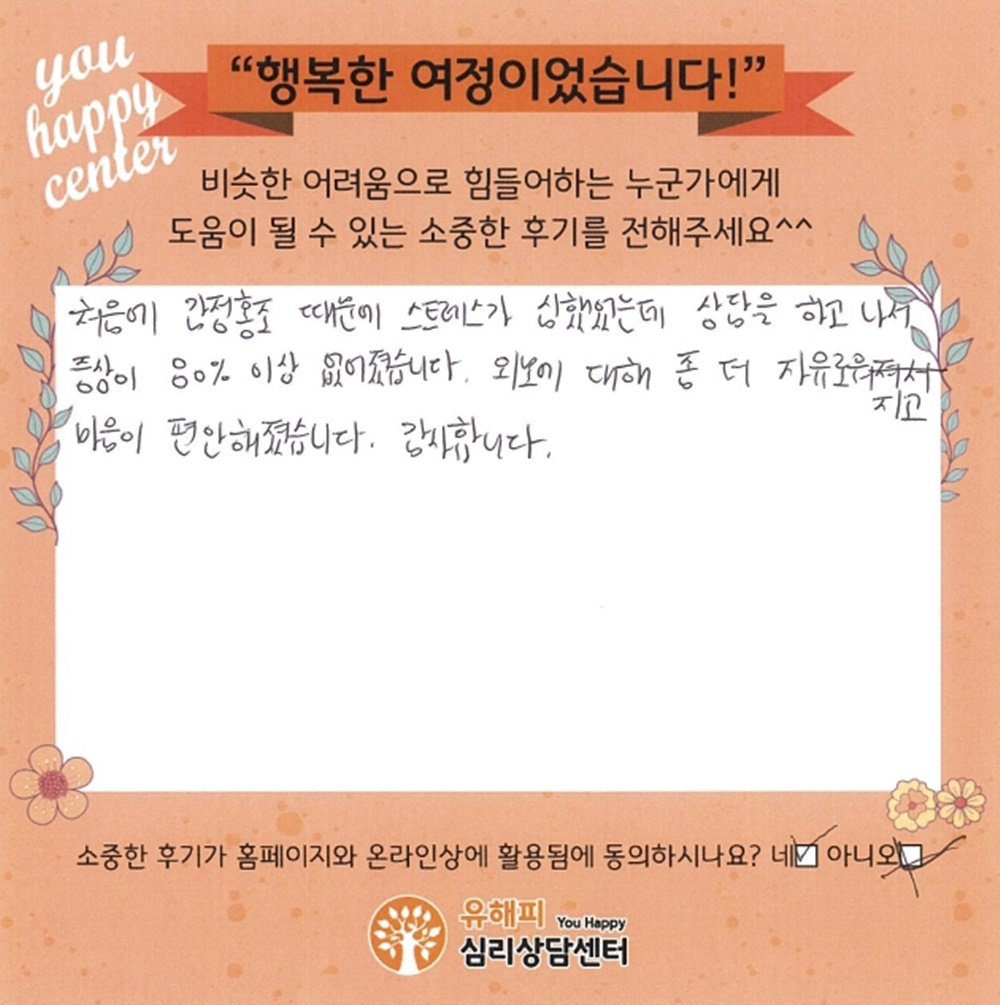 you
happy
center
“행복한 여정이었습니다!”
비슷한 어려움으로 힘들어하는 누군가에게
도움이 될 수 있는 소중한 후기를 전해주세요^^
처음에 감정홍조 때문에 스트레스가 심했었는데 상담을 하고 나서
증상이 80% 이상 없어졌습니다. 외모에 대해 좀 더 자유로워져서
지고
마음이 편안해졌습니다. 감사합니다.
소중한 후기가 홈페이지와 온라인상에 활용됨에 동의하시나요? 네 아니오
유해피 You Happy
심리상담센터